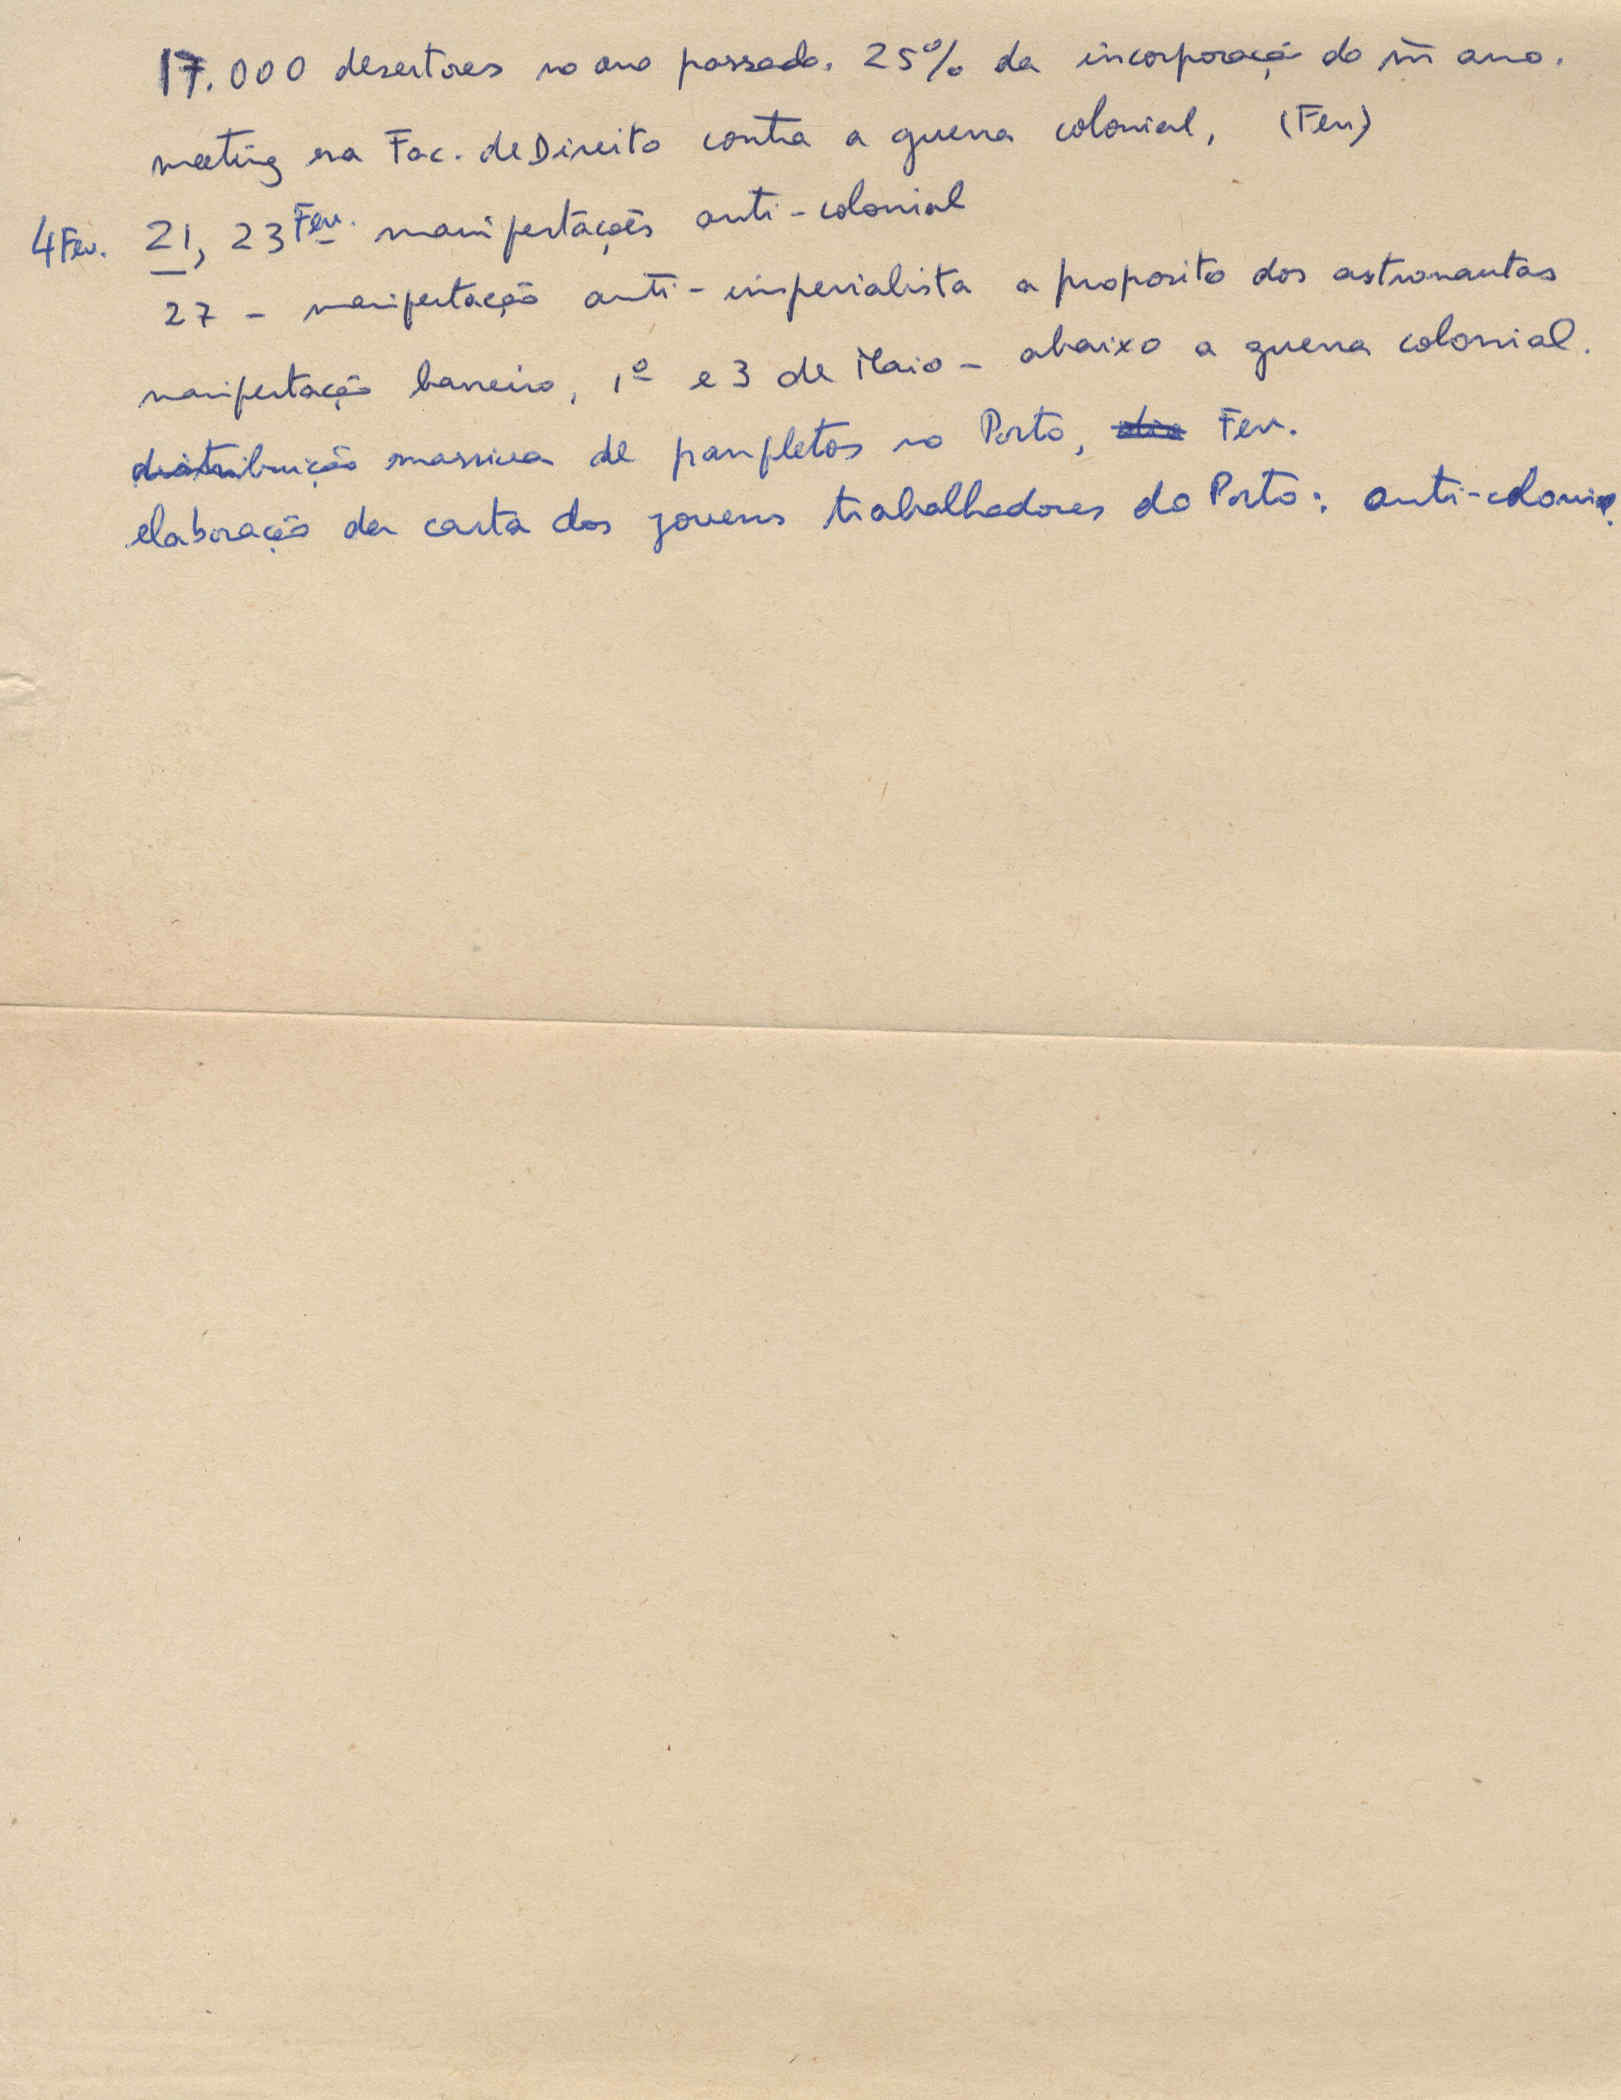 17.000 desertores no ano passado. 25% da incorporação do m̄ ano.
meeting na Fac. de Direito contra a guerra colonial, (Fev)
4 Fev. 21, 23 Fev. manifestações anti-colonial
27 - manifestação anti-imperialista a proposito dos astronautas
manifestação barreiro, 1º e 3 de Maio - abaixo a guerra colonial.
distribuição massiva de panfletos no Porto, dia Fev.
elaboração da carta dos jovens trabalhadores do Porto: anti-colonial